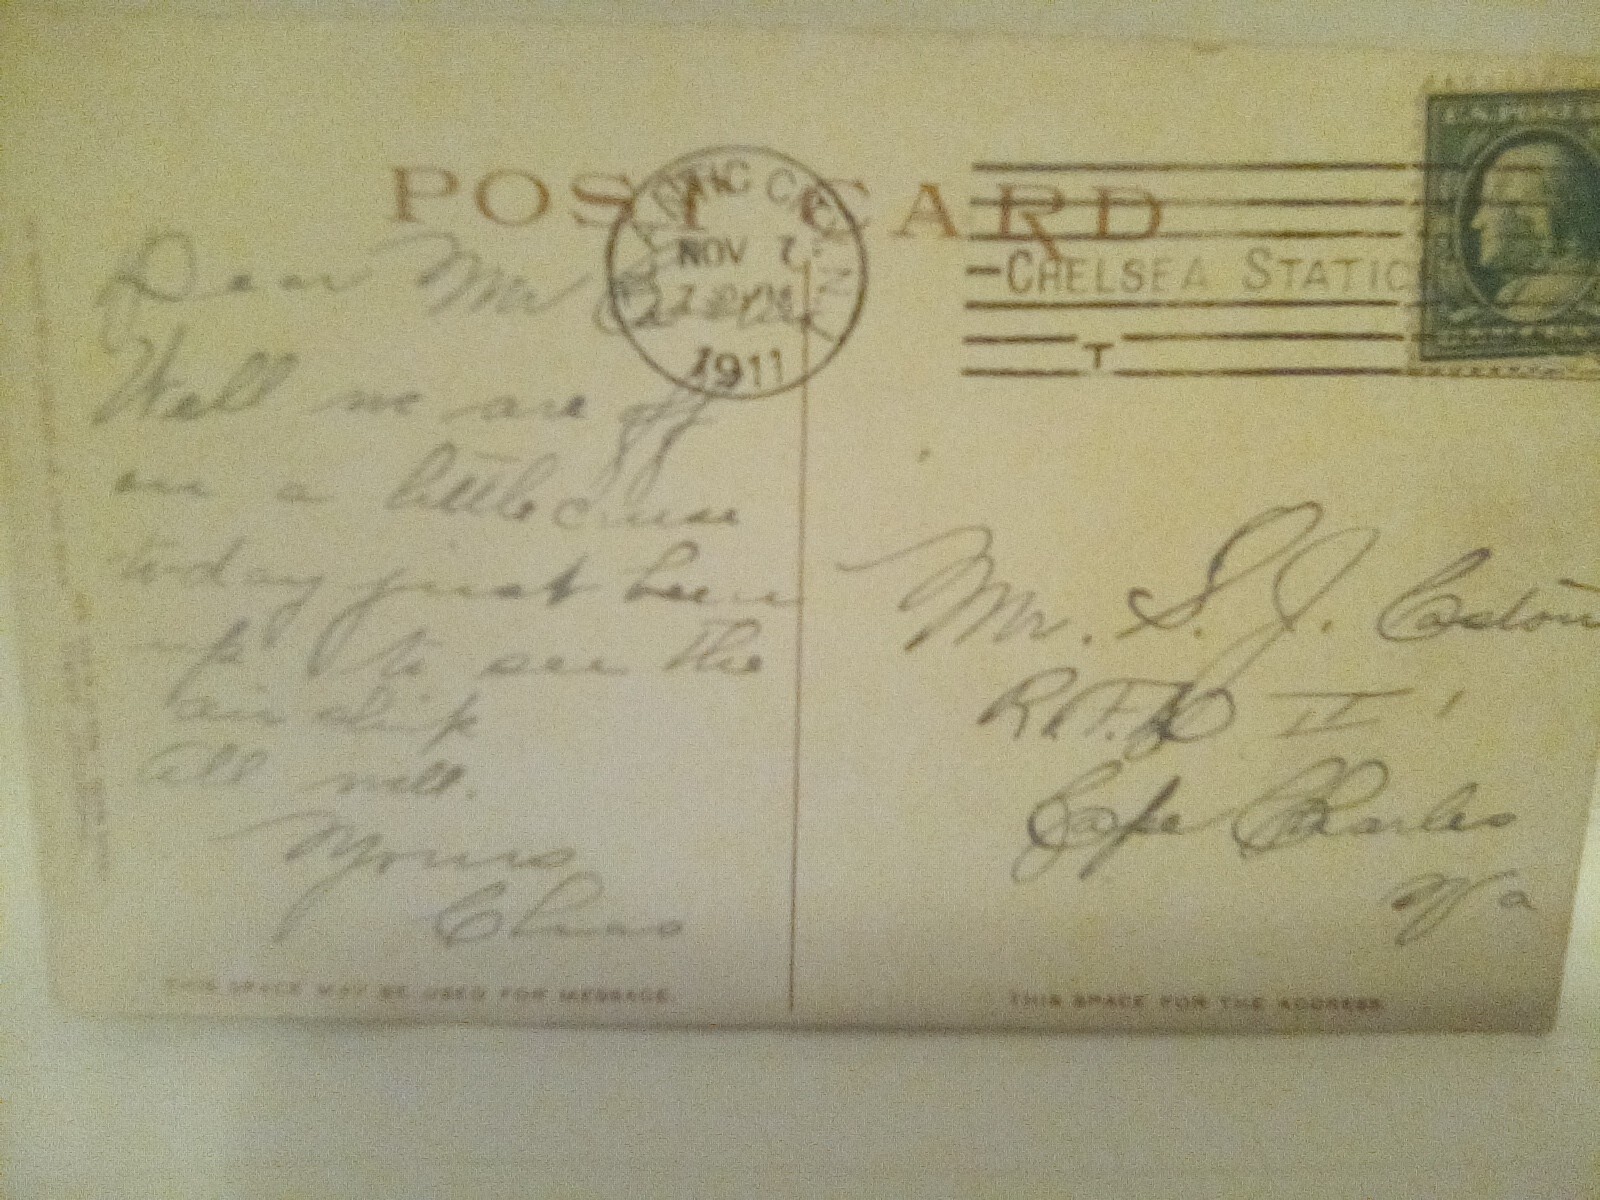 POST CARD
ATLANTIC CITY, N.J.
NOV 7
1911
CHELSEA STATIO
T
U.S. POST
Dear Mr C
Well we are off
on a little cruise
today just been
up to see the
air ship
All well.
Yours
Chas
Mr. S. J. Costin
R.F.D II
Cape Charles
Va
THIS SPACE MAY BE USED FOR MESSAGE.
THIS SPACE FOR THE ADDRESS.